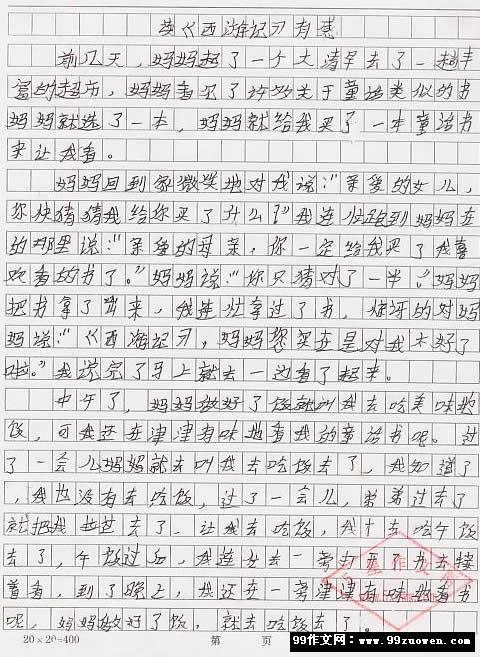 读《西游记》有感
前几天，妈妈起了一个大清早去了一趟丰
富的超市，妈妈看见了许多关于童话类似的书
妈妈就选了一本，妈妈就给我买了一本童话书
来让我看。
妈妈回到家微笑地对我说：“亲爱的女儿，
你快猜猜我给你买了什么？”我连忙跑到妈妈在
的那里说：“亲爱的母亲，你一定给我买了我喜
欢看的书了。”妈妈说：“你只猜对了一半。”妈妈
把书拿了出来，我连忙拿过了书，惊讶的对妈
妈说：“《西游记》，妈妈您实在是对我太好了
啦。”我说完了马上就去一边看了起来。
中午了，妈妈做好了饭就叫我去吃美味的
饭，可我还在津津有味地看我的童话书呢。过
了一会儿妈妈就去叫我去吃饭去了，我知道了
，我也没有去吃饭，过了一会儿，弟弟过去了
就把我过去了，让我去吃饭，我才去吃午饭
去了，午饭过后，我连忙去一旁了书去接
着看，到了晚上，我还在一旁津津有味的看书
呢，妈妈做好了饭，就去吃饭去了。
20×20=400 第 页
99作文网：www.99zuowen.com